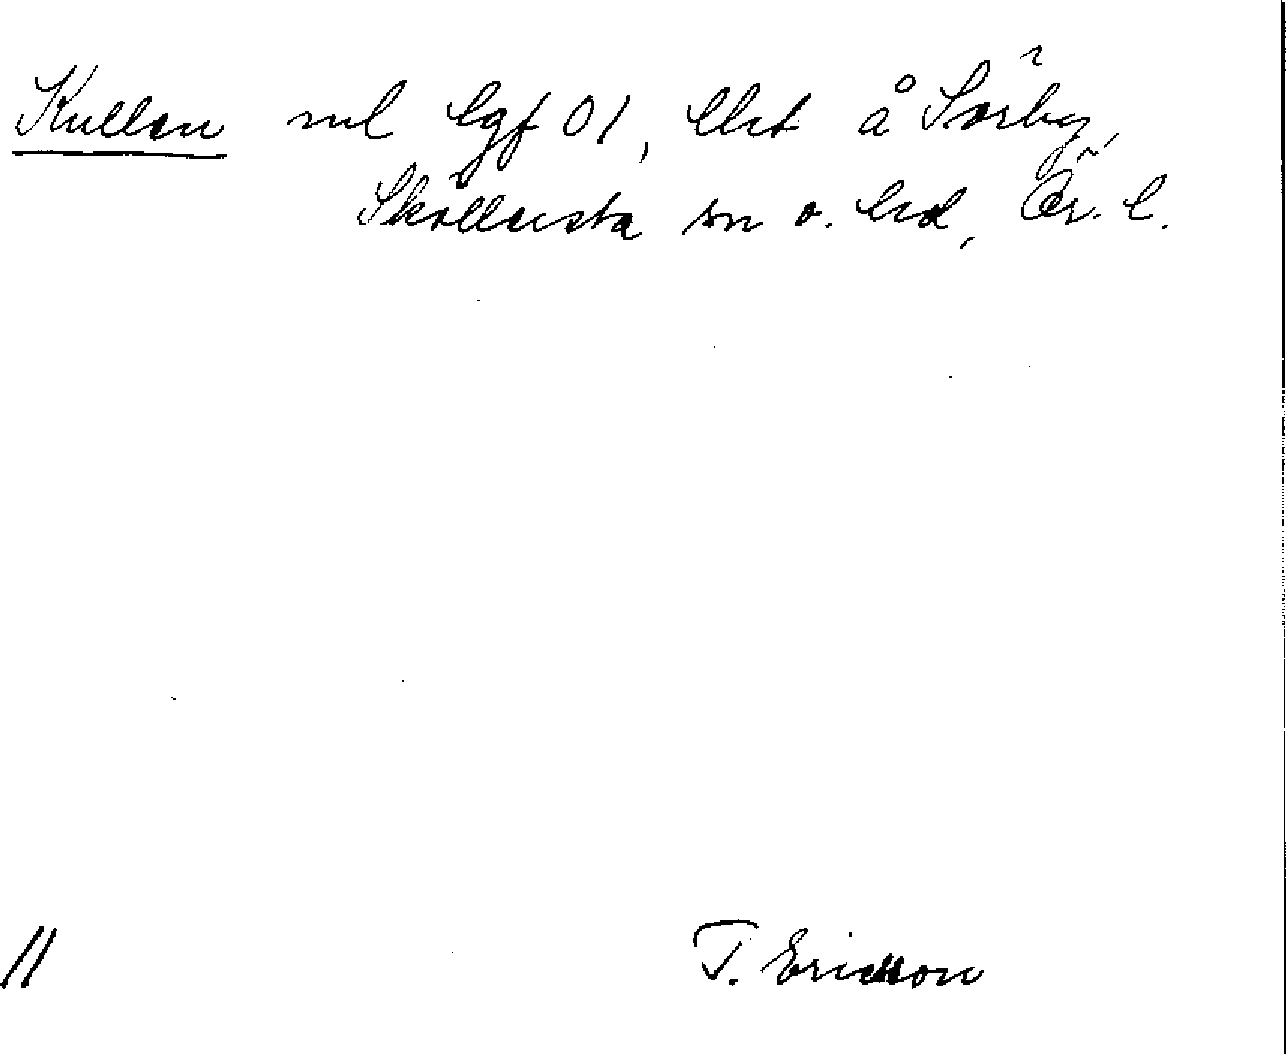 Kullen nul lgf 01, lht å Sörby,
Sköllersta sn o. hd, Ör. l.
11
T. Ericsson